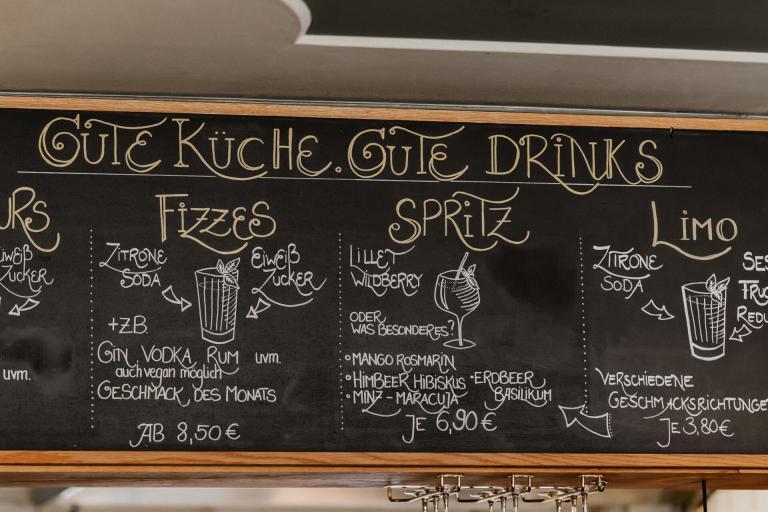 GUTE KÜCHE. GUTE DRINKS
EIWEIß
ZUCKER
UVM.
FIZZES
ZITRONE
SODA
EIWEIß
ZUCKER
+ZB.
GIN, VODKA, RUM UVM.
auch vegan möglich
GESCHMACK DES MONATS
AB 8,50€
SPRITZ
LILLET
WILDBERRY
ODER
WAS BESONDERES?
•MANGO ROSMARIN
•HIMBEER HIBISKUS •ERDBEER
•MINZ-MARACUJA BASILIKUM
JE 6,90€
LIMO
ZITRONE
SODA
VERSCHIEDENE
GESCHMACKSRICHTUNGE
JE 3,80€